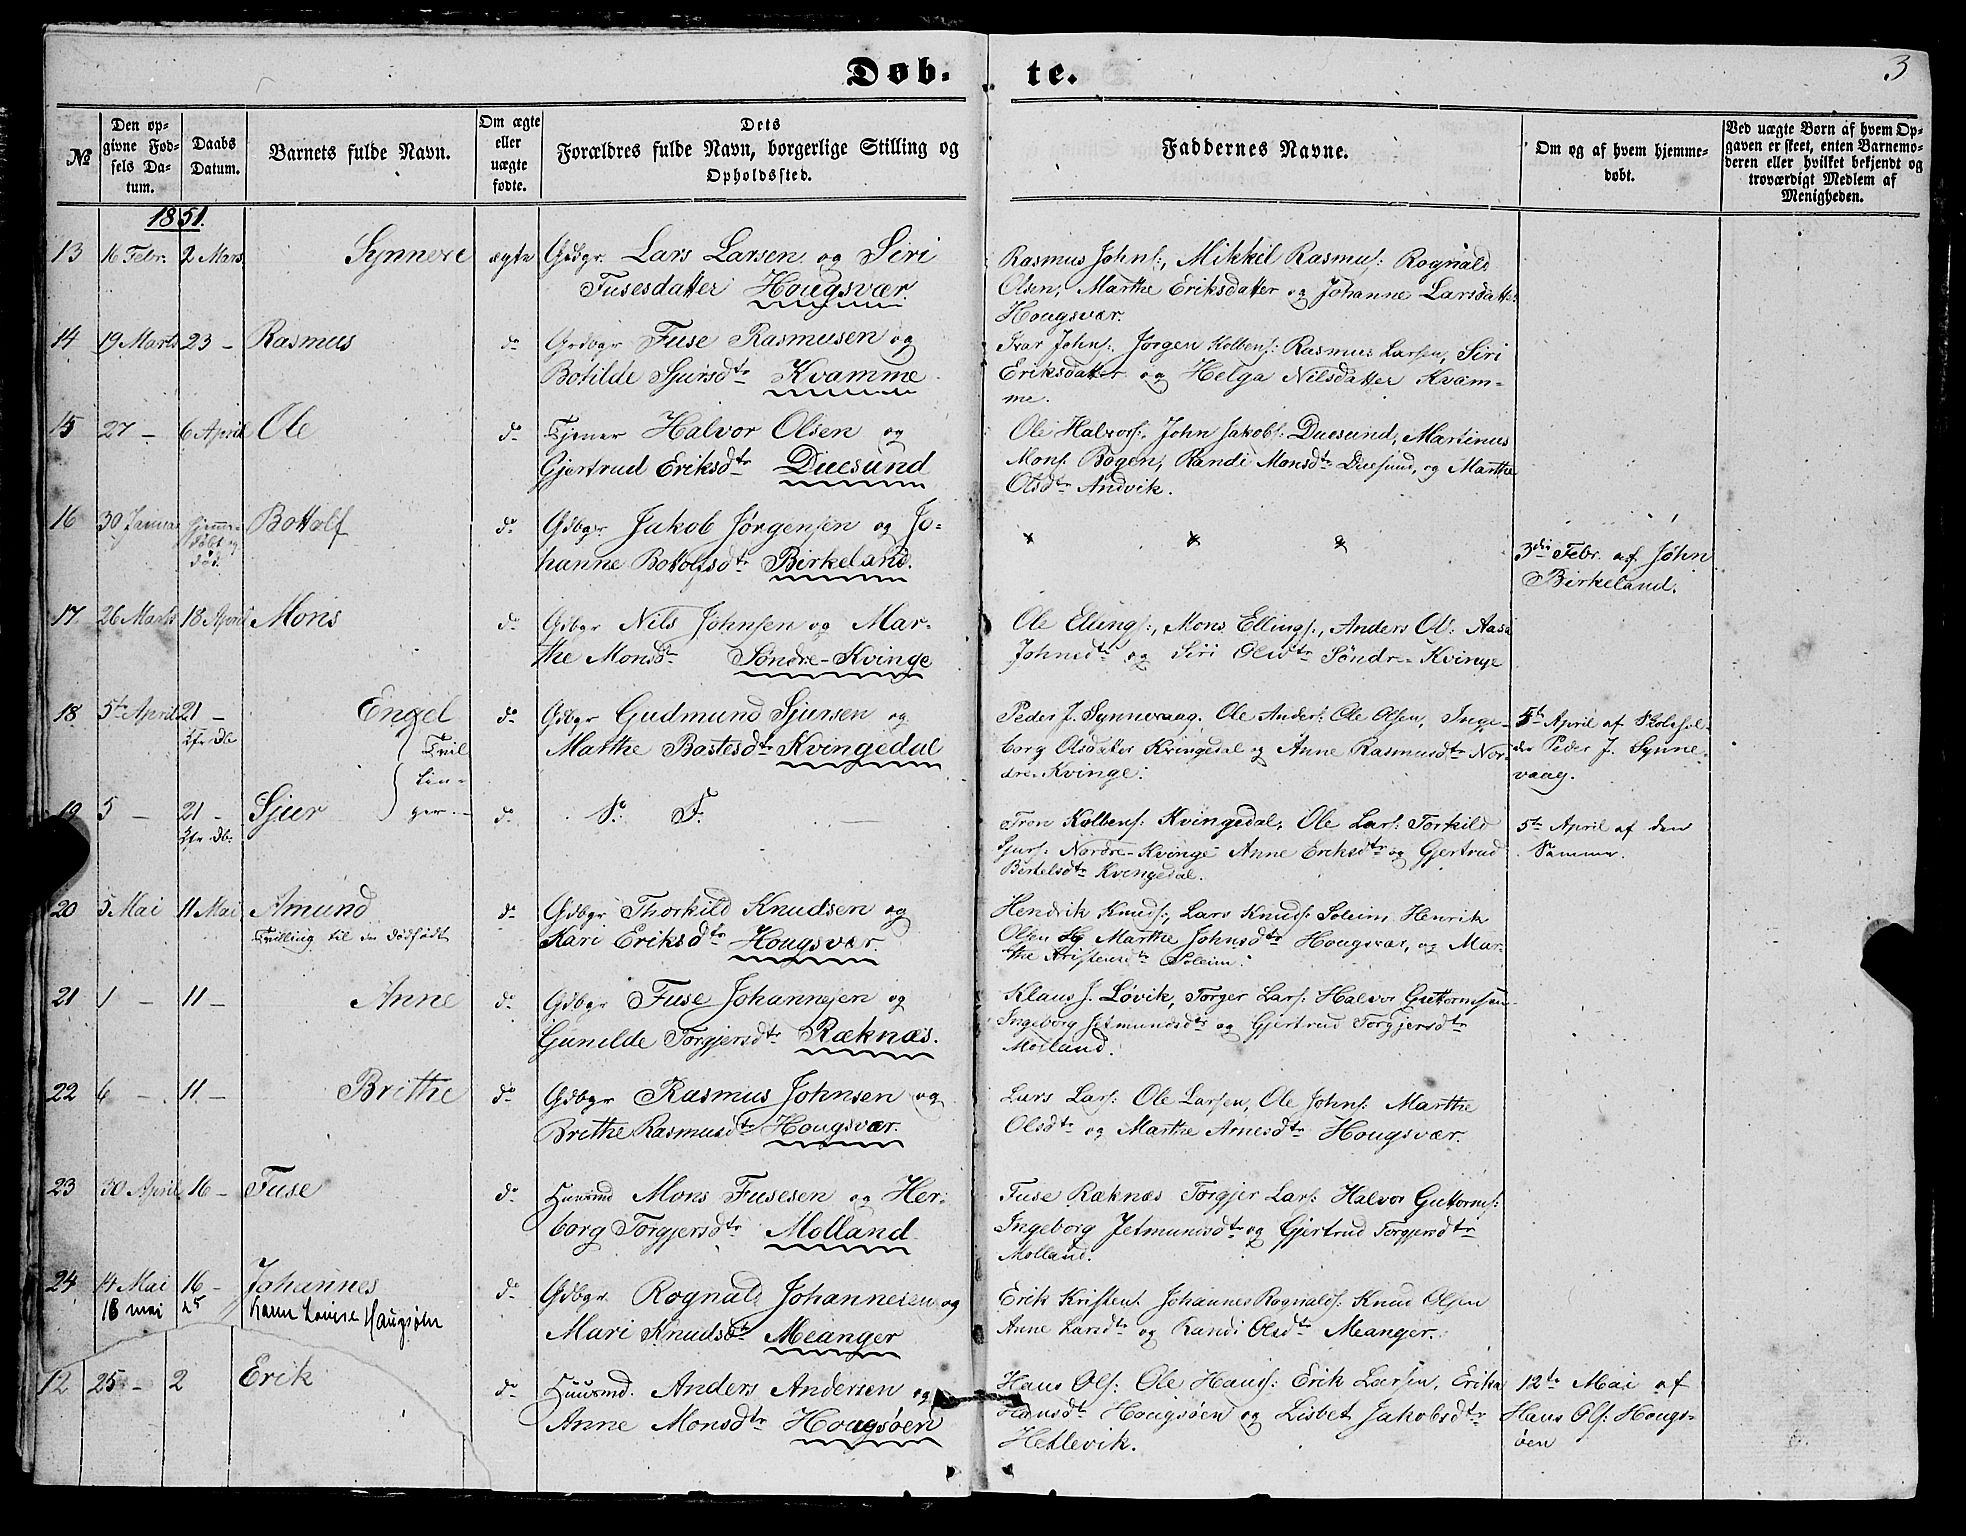 Døb- te. 3
№
Den op-
givne Fød-
sels Da-
tum.
Daabs
Datum.
Barnets fulde Navn.
Om ægte
eller
uægte
fødte.
Dets
Forældres fulde Navn, borgerlige Stilling og
Opholdssted.
Faddernes Navne.
Om og af hvem hjemme-
døbt.
Ved uægte Børn af hvem Op-
gaven er skeet, enten Barnemo-
deren eller hvilket bekjendt og
troværdigt Medlem af
Menigheden.
1851.
13 16 Febr. 2 Mars Synneve ægte Gdbgr. Lars Larsen og Siri
Fusesdatter Hougsvær.
Rasmus Johns:, Mikkel Rasmus: Rognald
Olsen, Marthe Eriksdatter og Johanne Larsdatter
Hougsvær.
14 19 Marts 23 - Rasmus do Grdbgr Fuse Rasmusen og
Botilde Sjursdtr Kvamme
Ivar Johns. Jørgen Kolbens: Rasmus Larsen, Siri
Eriksdatter og Helga Nilsdatter Kvam-
me.
15 27 - 6 April Ole do Tjener Halvor Olsen og
Gjertrud Eriksdtr Duesund
Ole Halvors:, John Jakobs: Duesund, Martinus
Mons. Bogen, Randi Monsdtr Duesund, og Marthe
Olsdtr Andvik.
16 30 Januar Hjemme-
døbt og
død. Bottolf do Gdbgr Jakob Jørgensen og Jo-
hanne Bottolfsdtr Birkeland.
3die Febr. af John
Birkeland.
17 26 Marts 18 April Mons do Gdbgr Nils Johnsen og Mar-
the Monsdtr Søndre-Kvinge
Ole Ellings:, Mons Ellings:, Anders Ol: Aasa
Johnsdtr og Siri Olsdtr Søndre-Kvinge
18 5te April 21 - Engel do Gdbgr Gudmund Sjursen og
Marthe Bastesdtr Kvingedal
Tvil
lin-
ger
Peder J. Synnevaag. Ole Anders: Ole Olsen, Inge-
borg Olsdatter Kvingedal og Anne Rasmusdtr Nor-
dre-Kvinge.
5te April af Skolehol-
der Peder J. Synne-
vaag.
19 5 - 21 - Sjur do S. F.
Tron Kolbens: Kvingedal, Ole Lars: Torkild
Sjurs: Nordre-Kvinge Anne Eriksdtr og Gjertrud
Bertelsdtr Kvingedal.
5te April af den
Samme.
20 5 Mai 11 Mai Amund do Gdbgr Thorkild Knudsen og
Tvilling til den dødfødt
Kari Eriksdtr Hougsvær
Hendrik Knuds:, Lars Knuds: Soleim Henrik
Olsen og Marthe Johnsdtr Hougsvær, og Mar-
the Kristensdtr Soleim.
21 1 - 11 - Anne do Gdbgr Fuse Johannesen og
Gunilde Torgjersdtr Ræknæs.
Klaus J. Løvik, Torger Lars: Halvor Guttormsen
Ingeborg Jetmundsdtr og Gjertrud Torgjersdtr
Molland.
22 6 - 11 - Brithe do Gdbgr Rasmus Johnsen og
Brithe Rasmusdtr Hougsvær.
Lars Lars: Ole Larsen, Ole Johns: Marthe
Olsdtr og Marthe Arnesdtr Hougsvær.
23 30 April 16 - Fuse do Huusmd Mons Fusesen og Her-
borg Torgjersdtr Molland
Fuse Ræknæs Torgjer Lars: Halvor Guttorms:
Ingeborg Jetmundsdtr og Gjertrud Torgjersdtr
Molland.
24 14 Mai 16 - Johannes do Gdbgr Rognald Johannesen og
18 mai 25 Haugsøen
Mari Knudsdtr Meanger
Erik Kristens. Johannes Rognalds: Knud Olsen
Anne Larsdtr og Randi Olsdtr Meanger.
12 25 - 2 Erik do Huusmd. Anders Andersen og
Anne Monsdtr Hougsøen
Hans Ols: Ole Hans: Erik Larsen, Erika
Hansdtr Hougsøen og Lisbet Jakobsdtr
Hellevik.
12te Mai af
Hans Ols: Hougs-
øen